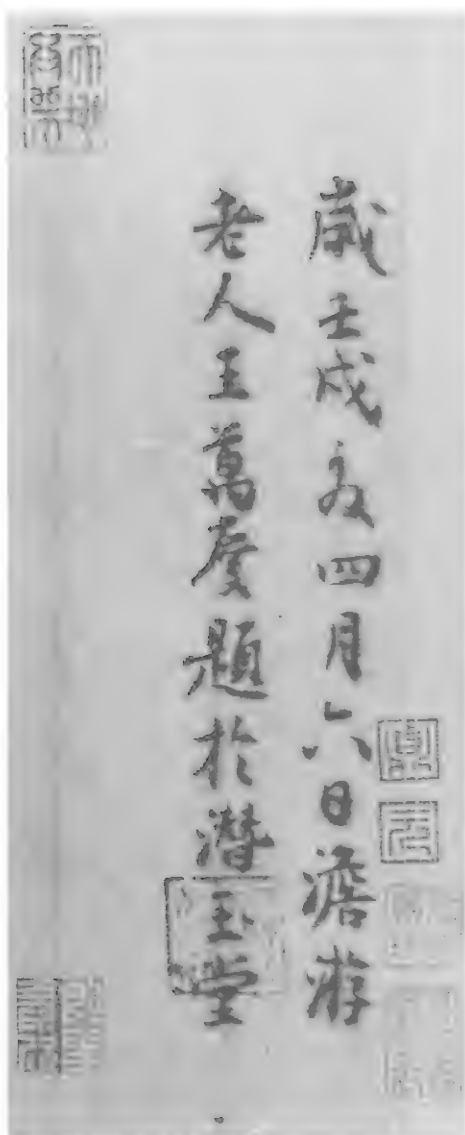 歲壬戌夏四月六日澹游
老人王萬慶題於潛玉堂